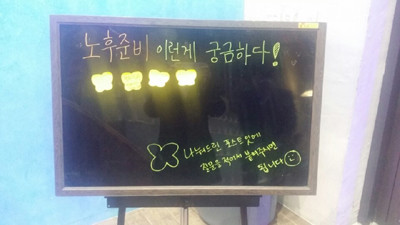 노후준비 이런게 궁금하다!
나눠드린 포스트잇에
질문을 적어서 붙여주시면
됩니다